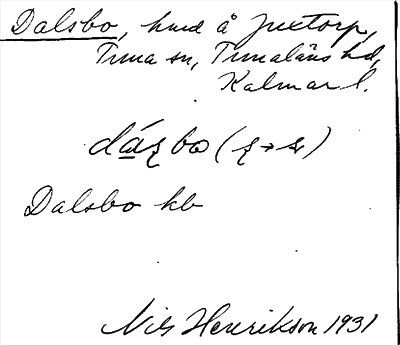 Dalsbo, hmd å Juxtorp,
Tuna sn, Tunaläns hd,
Kalmar l.
dáʂbo (ʂ→s)
Dalsbo kb
Nils Henrikson 1931